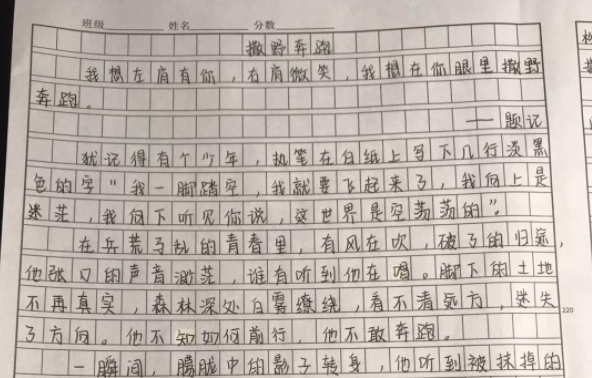 班级 姓名 分数
撒野奔跑
我想左肩有你，右肩微笑，我想在你眼里撒野
奔跑。
——题记
犹记得有个少年，执笔在白纸上写下几行淡黑
色的字“我一脚踏空，我就要飞起来了，我向上是
迷茫，我向下听见你说，这世界是空荡荡的”。
在兵荒马乱的青春里，有风在吹，破了的归
他张口的声音渺茫，谁有听到他在唱。脚下的土地
不再真实，森林深处白雾缭绕，看不清远方，迷失
220
了方向。他不知如何前行，他不敢奔跑。
一瞬间，朦胧中的影子转身，他听到被抹掉的